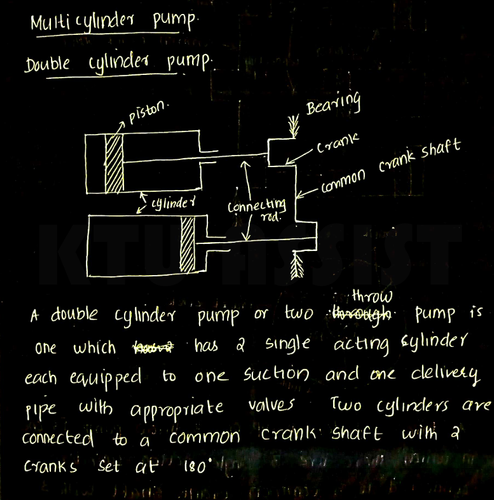 Multi cylinder pump.
Double cylinder pump.
piston.
Bearing
crank
common crank shaft
cylinder
connecting
rod.
KTU ASSIST
throw
A double cylinder pump or two through pump is
one which has 2 single acting cylinder
each equipped to one suction and one delivery
pipe with appropriate valves Two cylinders are
connected to a common crank shaft with 2
cranks set at 180°